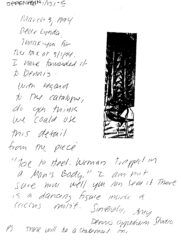 March 3, 1994
Dear Lynda,
Thank you for
the fax of
I have forwarded it
to Dennis
with regard
to the catalogue,
do you think
we could use
this detail
from the piece
"Ice to Steel Woman Trapped in
a Man's Body," I am not
sure how well you can see it There
is a dancing figure inside a
circus midst. Sincerely, Amy
Dennis Oppenheim Studio
PS There will be a statement